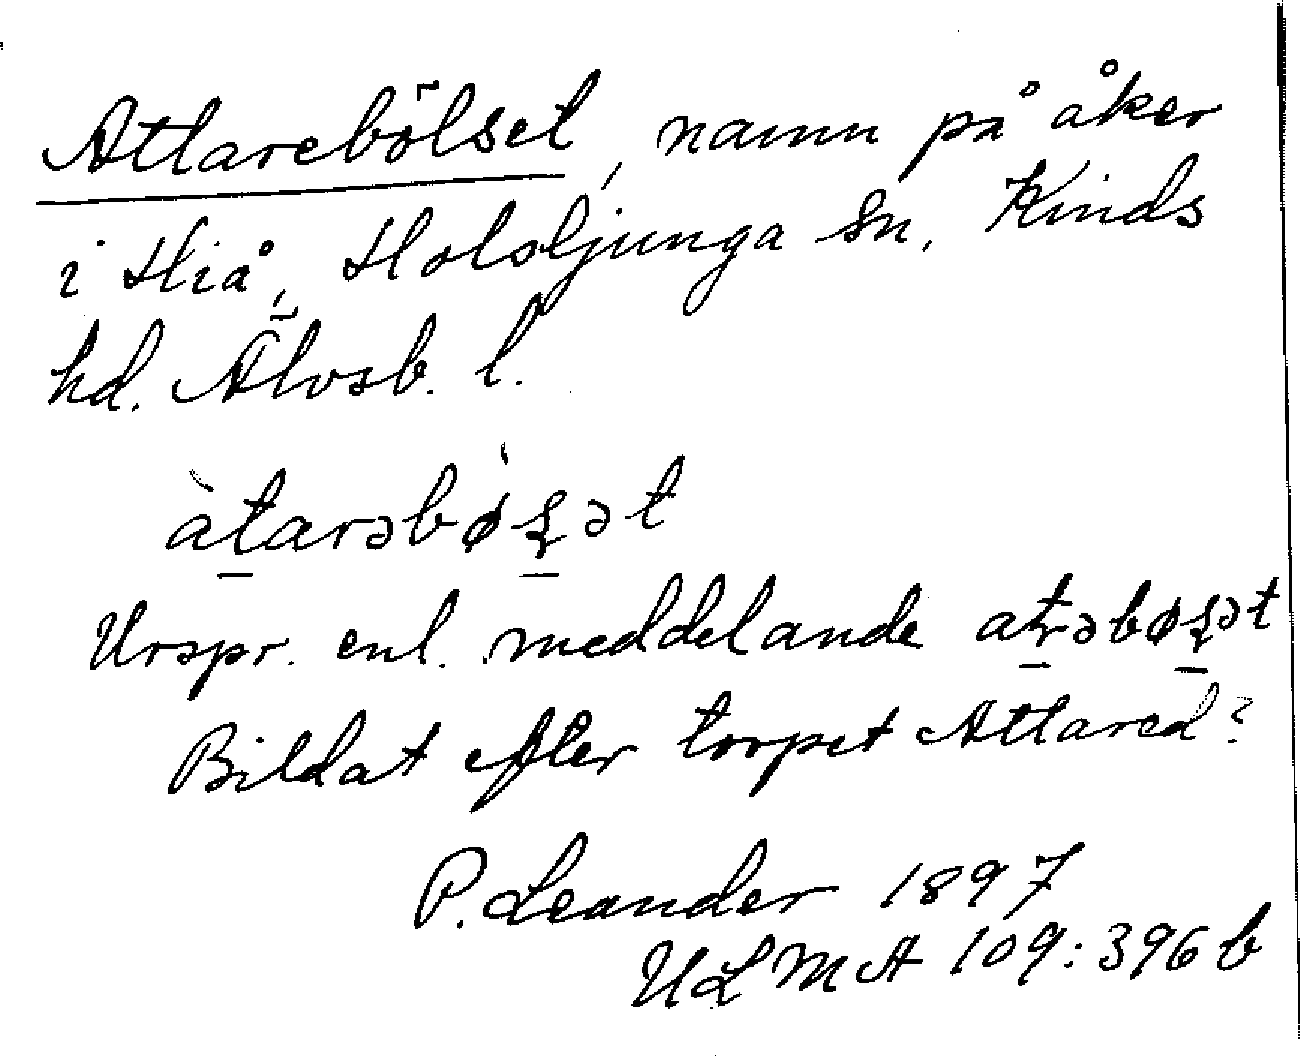 Attarebölset, namn på åker
i Hiå, Holsljunga sn, Kinds
hd. Älvsb. l.
àtarəbø̀ʂət
Urspr. enl. meddelande atrəbøʂət
Bildat efter torpet Attared?
P. Leander 1897
ULMA 109:396 b